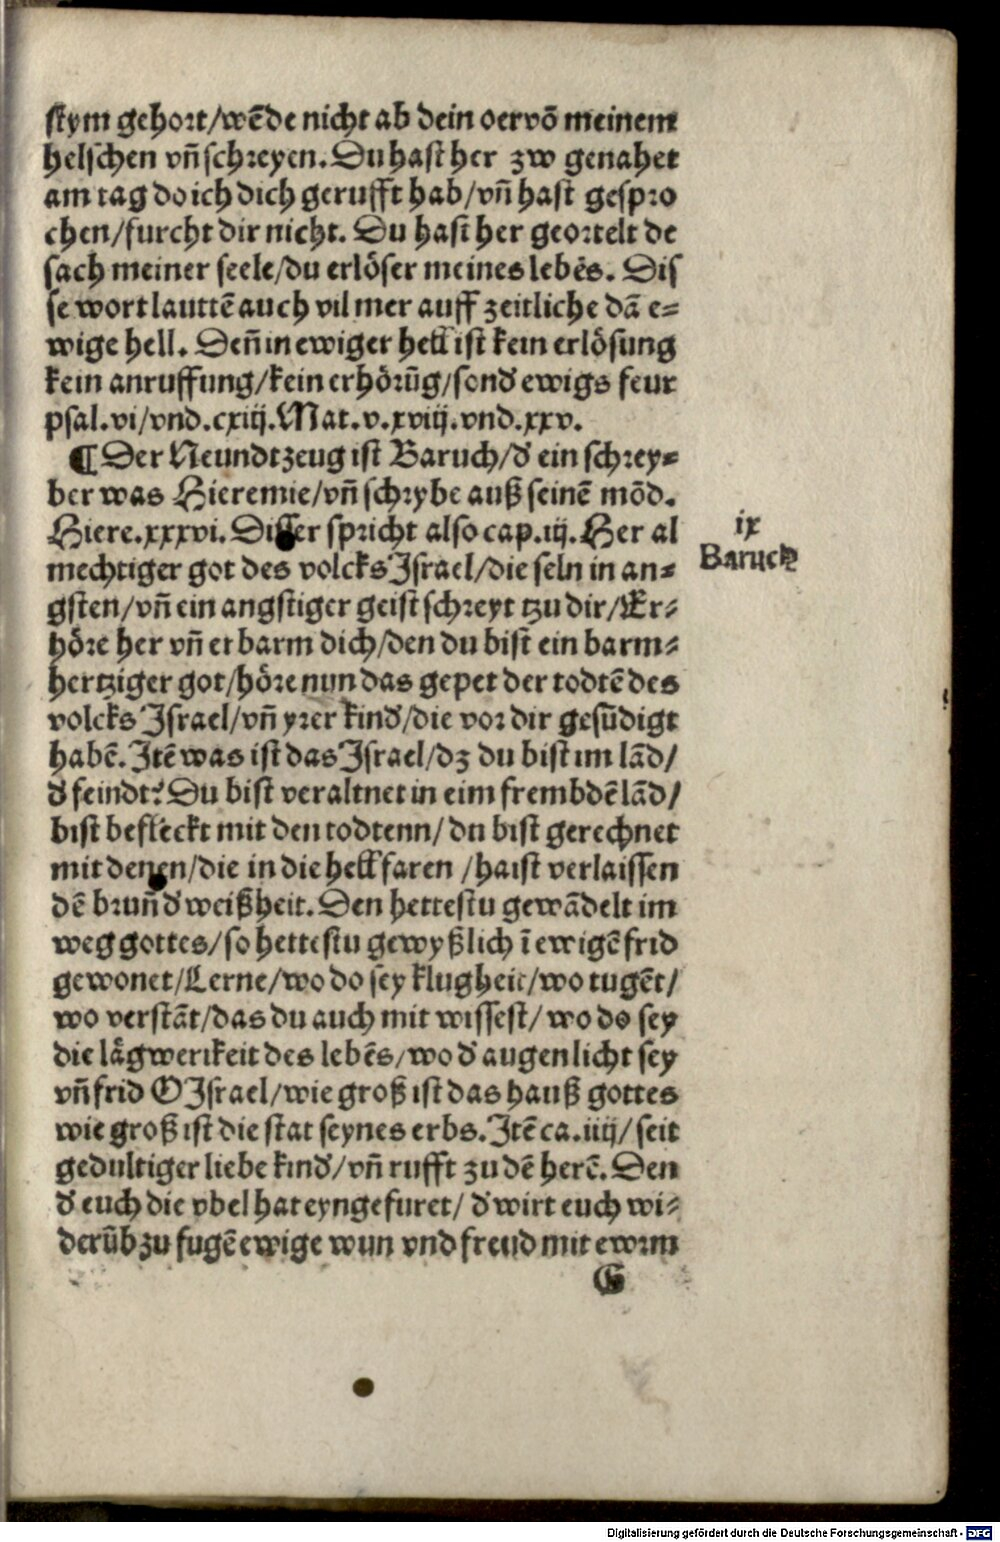 stym gehort/wēde nicht ab dein oer vō meinem
helschen vn̄ schreyen. Du hast her zw genahet
am tag do ich dich gerufft hab/vn̄ hast gespro
chen/furcht dir nicht. Du hast her geortelt de
sach meiner seele/du erlöser meines lebēs. Dis
se wort lauttē auch vil mer auff zeitliche dā e⸗
wige hell. Den̄ in ewiger hell ist kein erlösung
kein anruffung/kein erhörūg/sond' ewigs feur
psal.vi/vnd.cxiij.Mat.v.xviij.vnd.xxv.
¶ Der Neundt zeug ist Baruch/d' ein schrey⸗
ber was Hieremie/vn̄ schrybe auß seinē mōd.
Hiere.xxxvi. Disser spricht also cap.iij. Her al
mechtiger got des volcks Israel/die seln in an⸗
gsten/vn̄ ein angstiger geist schreyt tzu dir/Er⸗
höre her vn̄ erbarm dich/den du bist ein barm⸗
hertziger got/höre nun das gepet der todtē des
volcks Israel/vn̄ yrer kind'/die vor dir gesūdigt
habē. Itē was ist das Israel/dz du bist im lād/
d' feindt? Du bist veraltnet in eim frembdē lād/
bist befleckt mit den todtenn/du bist gerechnet
mit denen/die in die hell faren /haist verlaissen
dē brun̄ d' weißheit. Den hettestu gewādelt im
weg gottes/so hettestu gewyßlich ī ewigē frid
gewonet/Lerne/wo do sey klugheit/wo tugēt/
wo verstāt/das du auch mit wissest/wo do sey
die lāgwerikeit des lebēs/wo d' augen licht sey
vn̄ frid O Israel/wie groß ist das hauß gottes
wie groß ist die stat seynes erbs. Itē ca.iiij/seit
gedultiger liebe kind'/vn̄ rufft zu dē herē. Den
d' euch die vbel hat eyngefuret/d' wirt euch wi⸗
derūb zu fugē ewige wun vnd freud mit ewrm
G
ix
Baruch
Digitalisierung gefördert durch die Deutsche Forschungsgemeinschaft - DFG